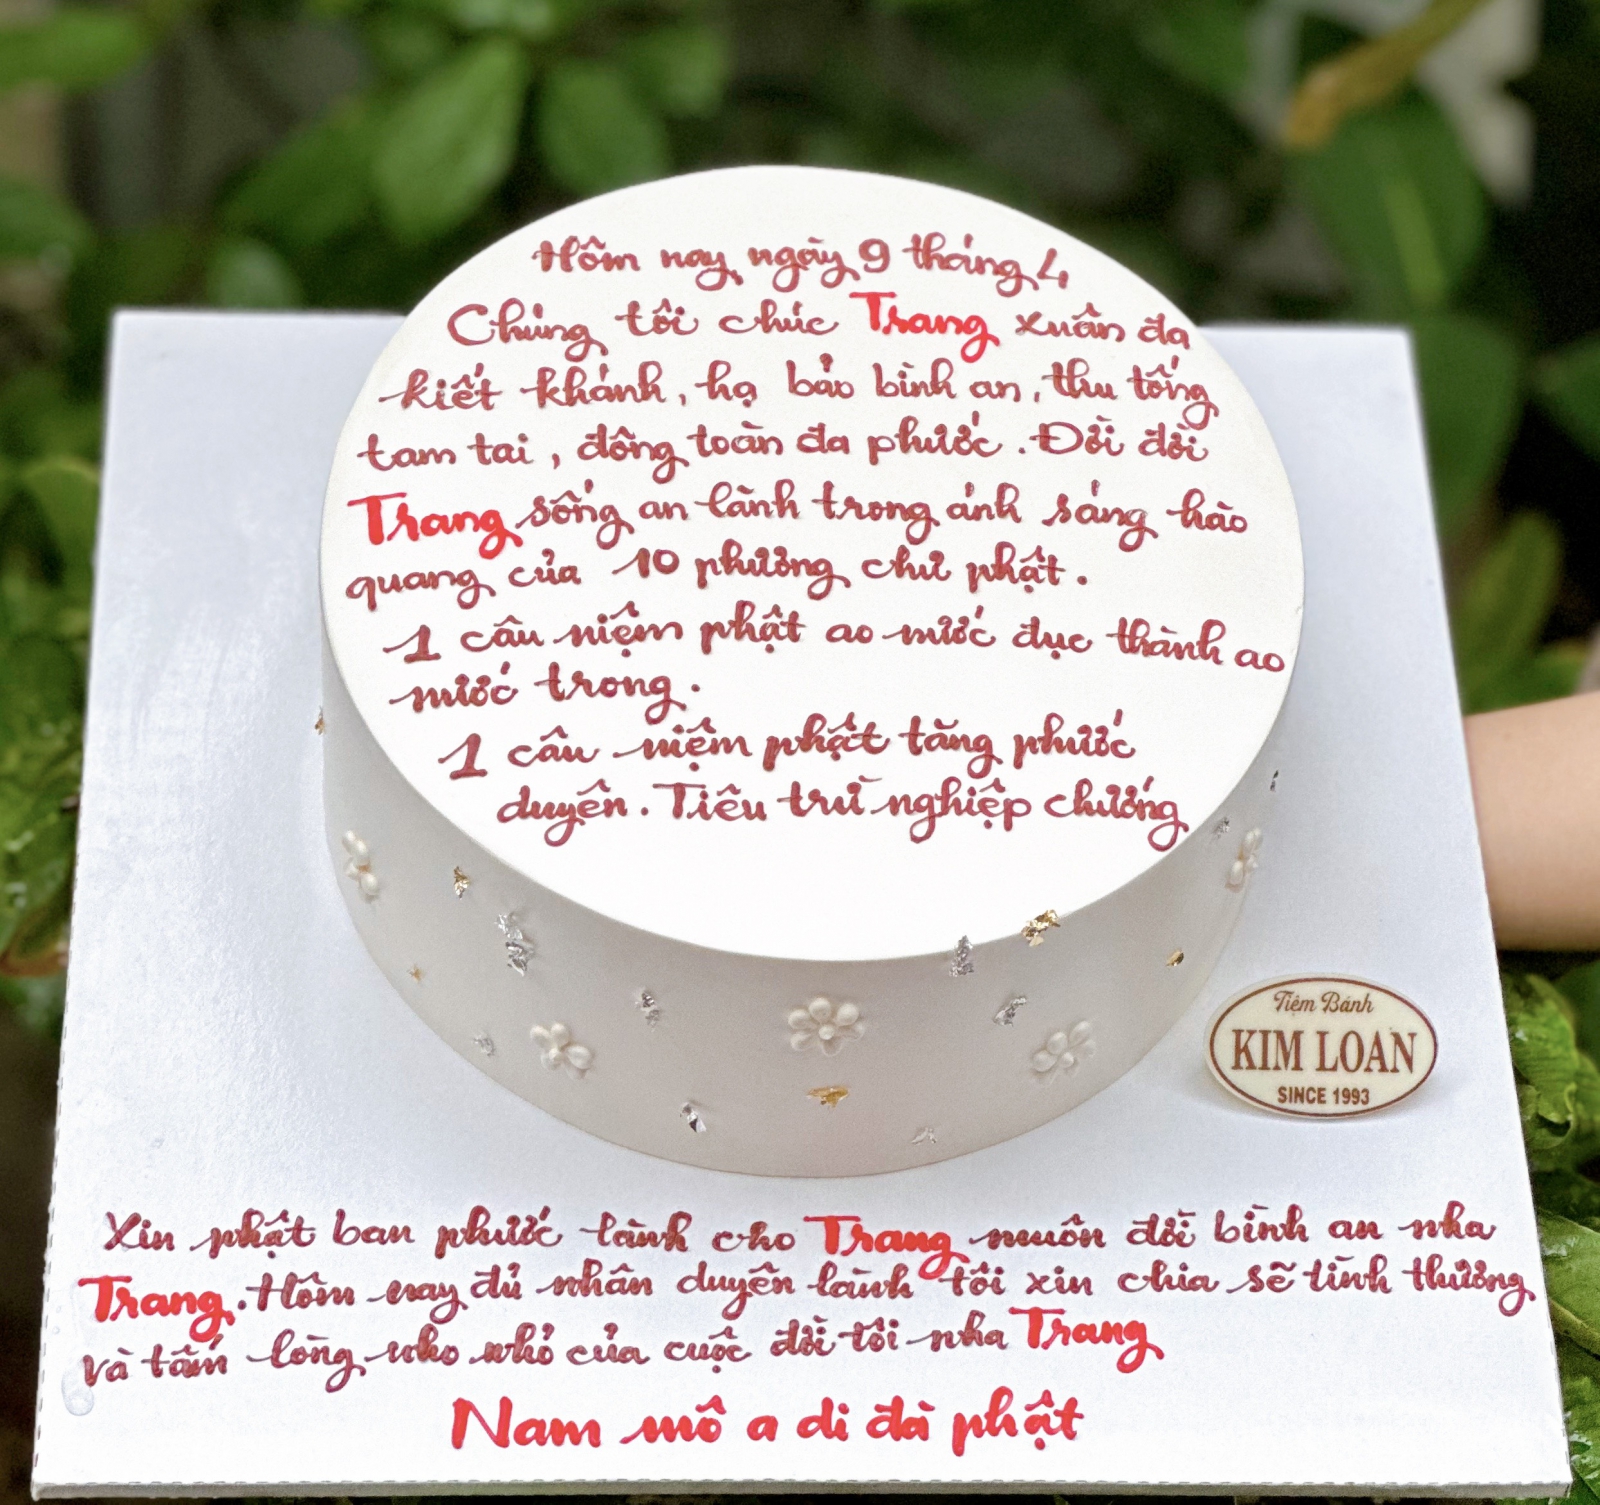 Hôm nay ngày 9 tháng 4
Chúng tôi chúc Trang xuân đa
kiết khánh, hạ bảo bình an, thu tống
tam tai, đông toàn đa phước. Đời đời
Trang sống an lành trong ánh sáng hào
quang của 10 phương chư phật.
1 câu niệm phật ao nước đục thành ao
nước trong.
1 câu niệm phật tăng phước
duyên. Tiêu trừ nghiệp chướng
Tiệm Bánh
KIM LOAN
SINCE 1993
Xin phật ban phước lành cho Trang muôn đời bình an nha
Trang. Hôm nay đủ nhân duyên lành tôi xin chia sẽ tình thương
và tấm lòng nho nhỏ của cuộc đời tôi nha Trang
Nam mô a di đà phật